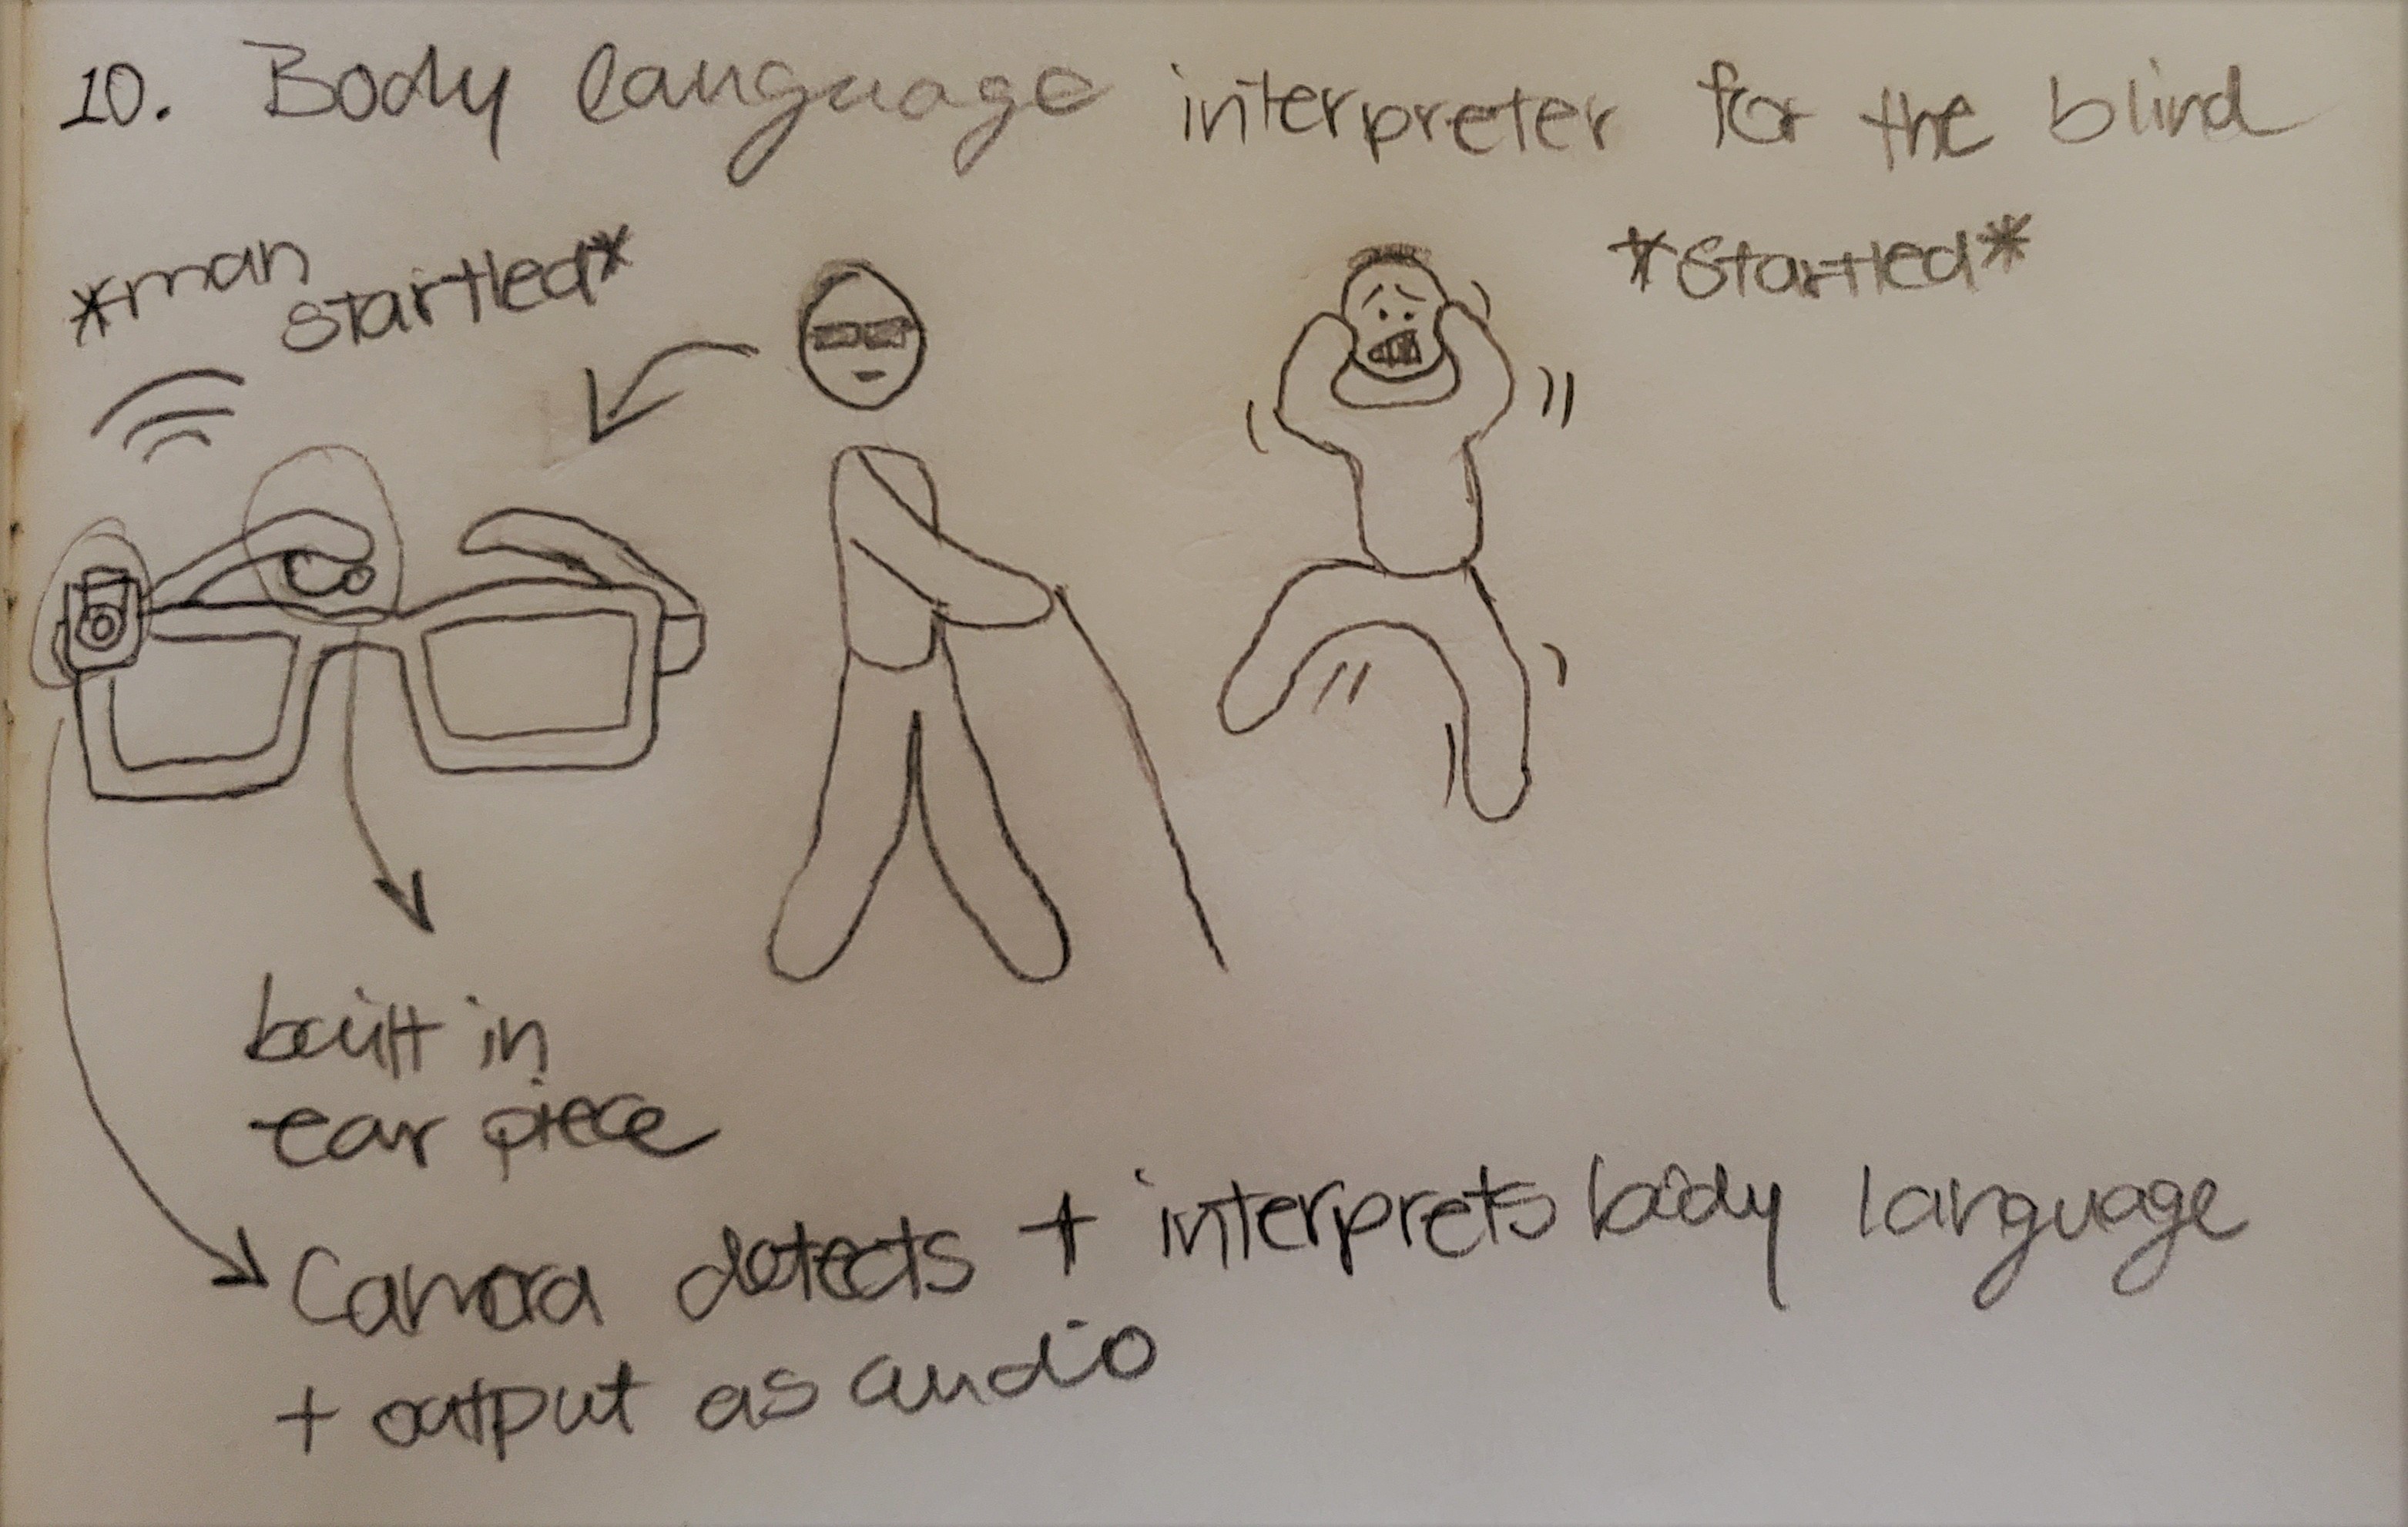 10. Body language interpreter for the blind
*man
startled*
*Startled*
built in
ear piece
Camera detects + interprets body language
+ output as audio